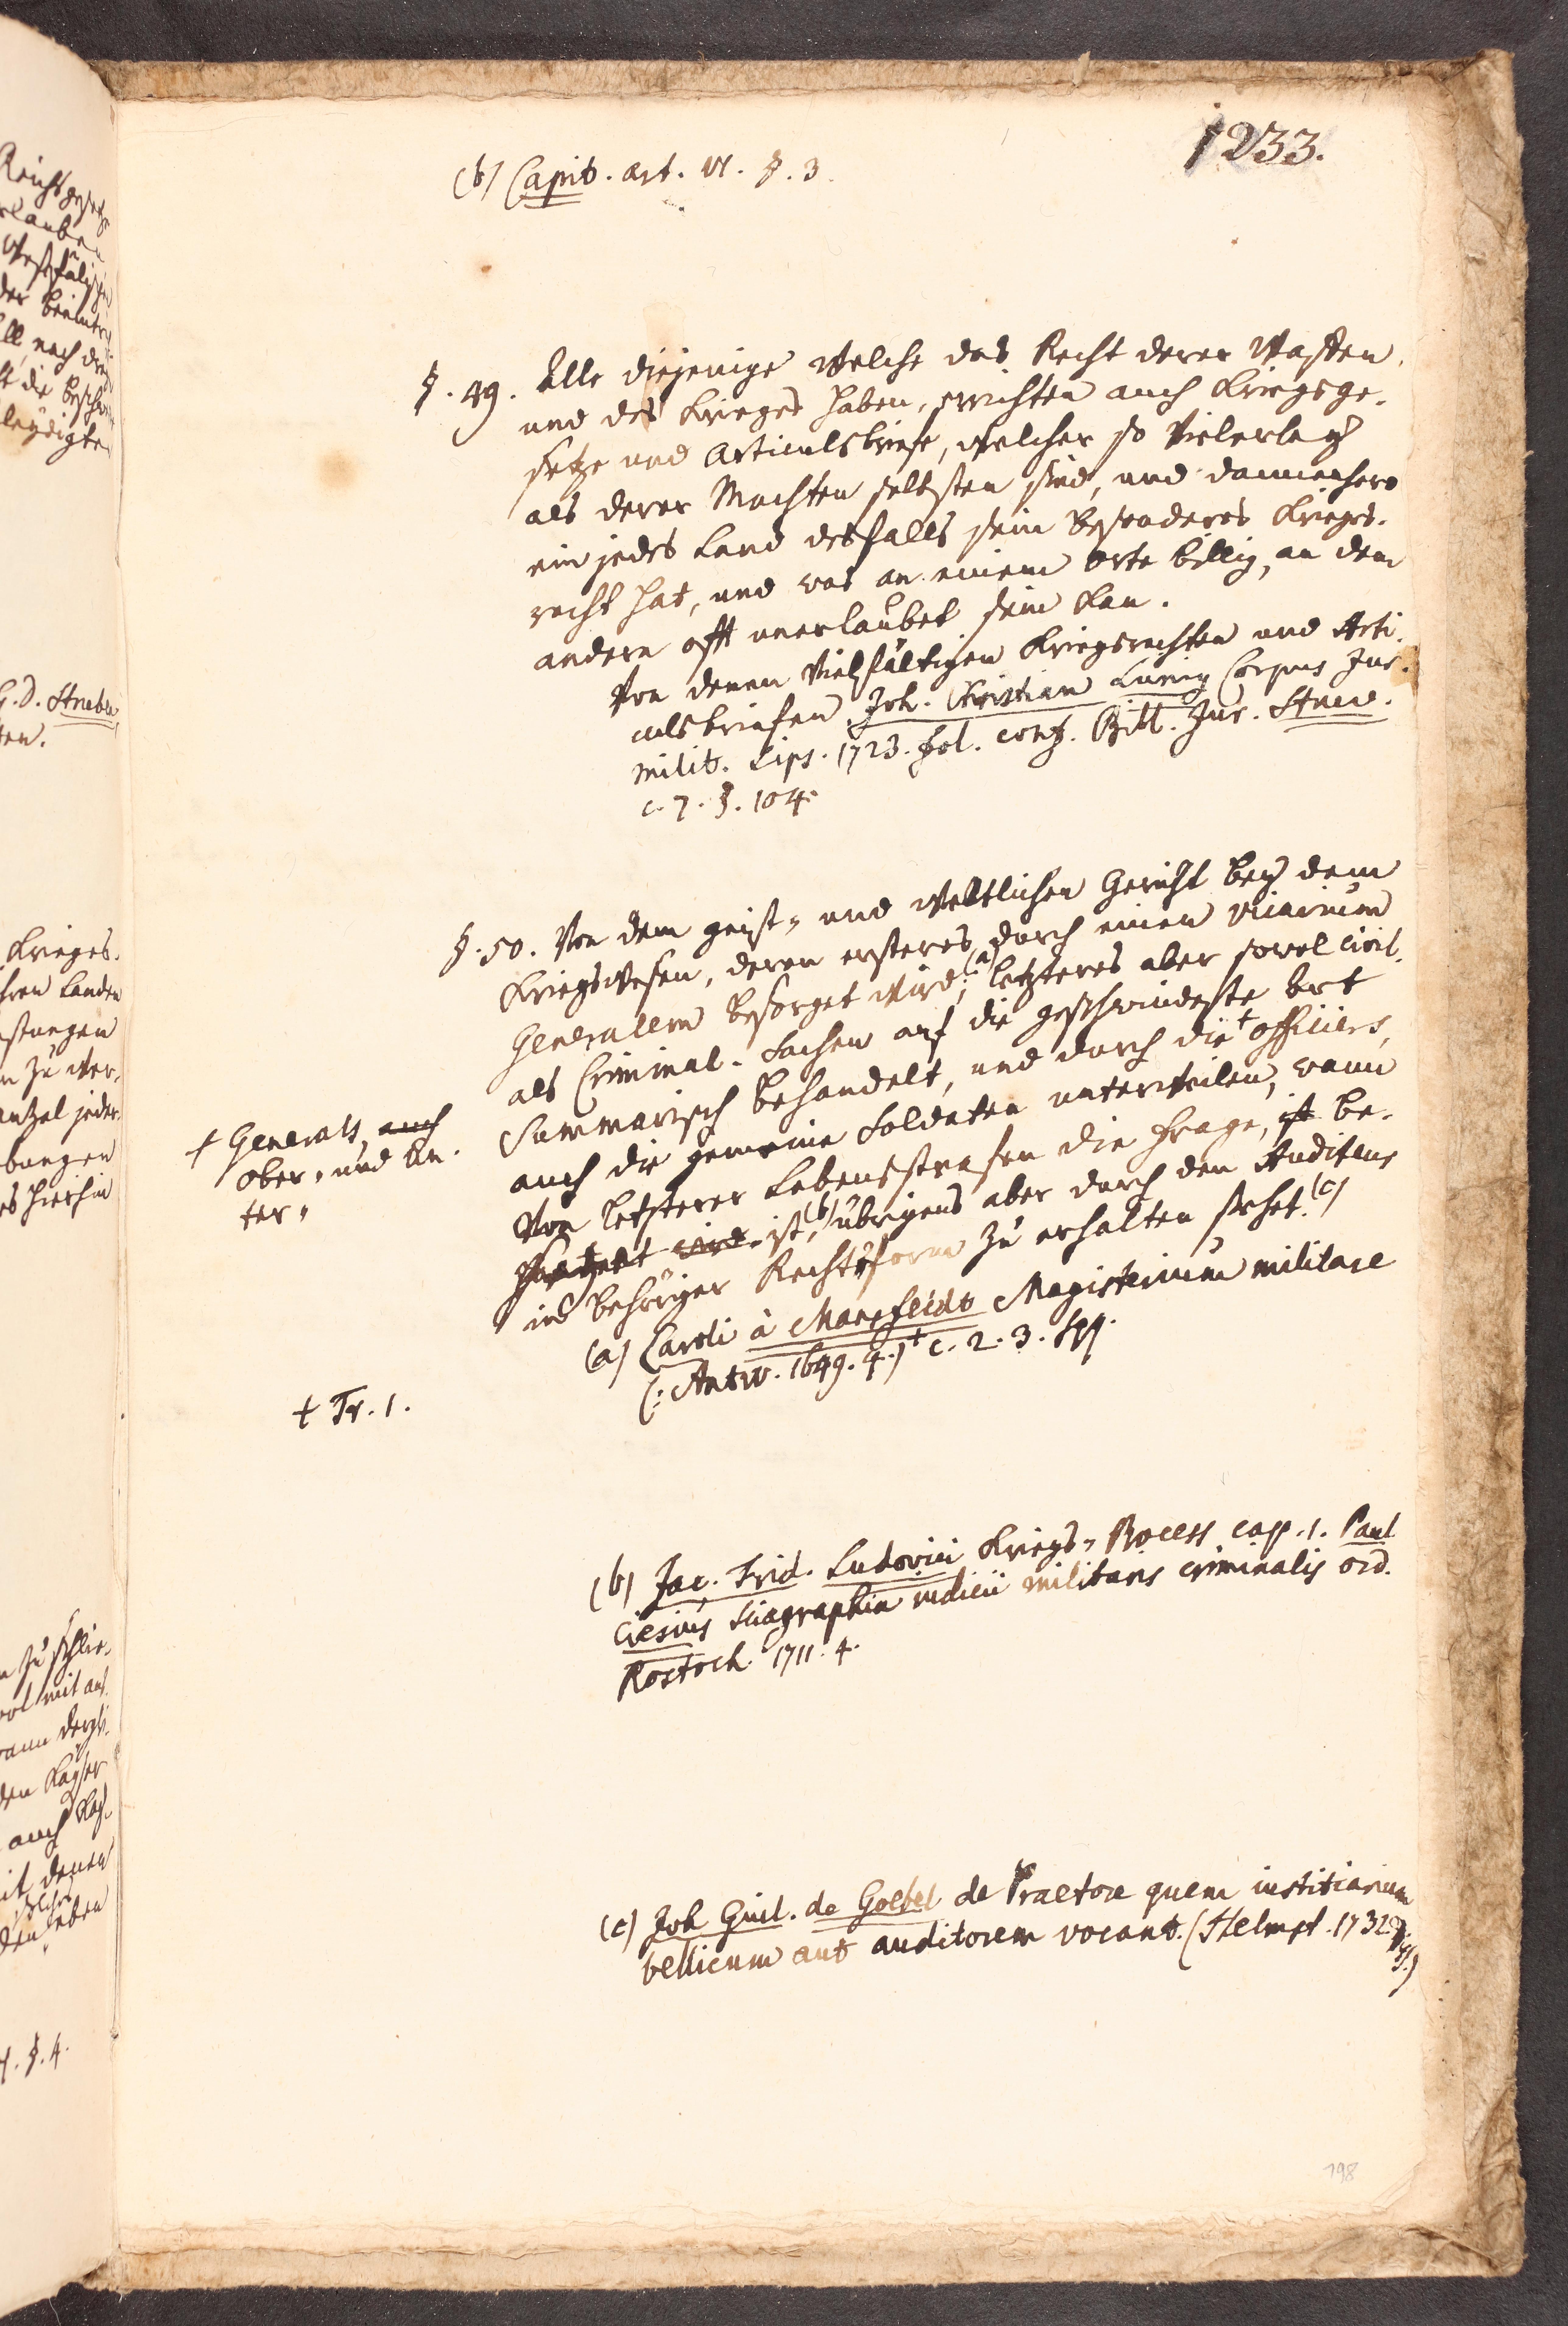 1233.
(b) Capit. art. VI. §. 3.
§. 49. Alle diejenige welche das Recht derer Waffen
und des Krieges haben, errichten auch Kriegsge-
setze und Articulsbriefe, welcher so vielerley
als derer Machten selbsten sind, und dannenhero
ein jedes Land desfalls sein besonderes Krieges-
recht hat, und was an einem Orte billig, an dem
andern offt unerlaubet sein kan.
Von denen vielfältigen Kriegsrechten und Arti-
culsbriefen Joh. Christian Lünig Corpus Jur.
milit. Lips. 1723. fol. conf. Bibl. Jur. Struv.
c. 7. §. 104.
§. 50. Von dem geist- und weltlichen Gericht bey dem
Kriegswesen, deren ersteres durch einen vicarium
Generalem besorget wird, (a) letzteres aber sowol Civil-
als Criminal-Sachen auf die geschwindeste Art
Summarisch behandelt, und durch die † officiers,
auch die gemeine Soldaten unterweilen, wann
von letzterer Lebensstrafen die Frage, ist be-
wird ist, (b) übrigens aber durch den Auditeur
in behöriger Rechtsform zu erhalten stehet. (c)
† Generals, auch
Ober- und Un-
ter-
(a) Caroli à Mansfeldt Magisterium militare
(: Antw. 1649. 4.) † c. 2. 3. sqq.
† Tr. 1.
(b) Jac. Frid. Ludovici Kriegs-Process cap. 1. Paul
Ciesius Sciagraphia iudicii militaris criminalis ord.
Rostoch 1711. 4.
(c) Joh Guil. de Goebel de Praetore quem iustitiarium
bellicum aut auditorem vocant. (Helmst. 1732.
4.)
798
G. D. Struben
Krieges-
hren Landen
n zu ver-
jeder
es hierhin
n zu schlie-
mit auf
den Kayser
auch
it denen
§. 4.